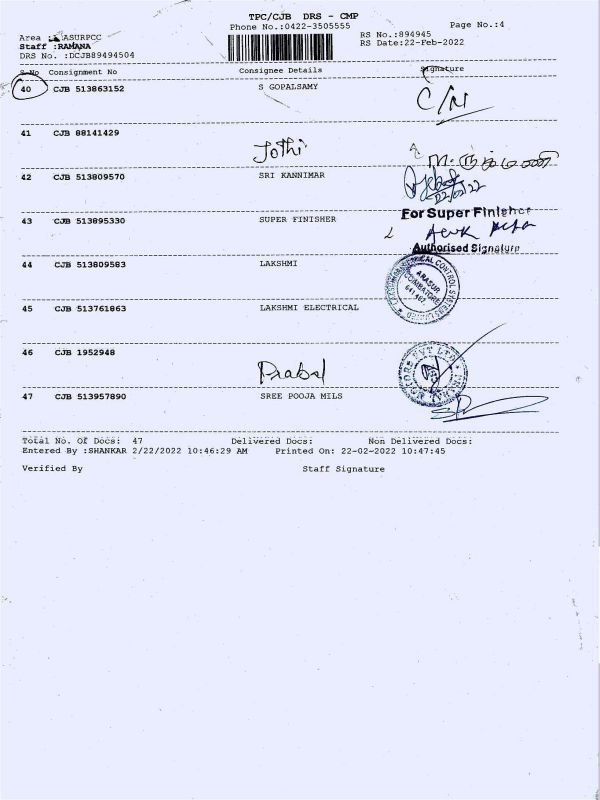 TPC/CJB DRS - CMP
Phone No.:0422-3505555
Page No.:4
Area : ASURPCC
RS No.:894945
Staff :RAMANA
RS Date:22-Feb-2022
DRS No. :DCJB89494504
S.No Consignment No Consignee Details Signature
40 CJB 513863152 S GOPALSAMY
C/N
41 CJB 88141429
Jothi
42 CJB 513809570 SRI KANNIMAR
22/02/22
43 CJB 513895330 SUPER FINISHER
For Super Finisher
Authorised Signature
44 CJB 513809583 LAKSHMI
ARASUR
COIMBATORE
641 407
CONTROL SYSTEMS
45 CJB 513761863 LAKSHMI ELECTRICAL
46 CJB 1952948
Prabal
PVT LTD
47 CJB 513957890 SREE POOJA MILS
Total No. Of Docs: 47 Delivered Docs: Non Delivered Docs:
Entered By :SHANKAR 2/22/2022 10:46:29 AM Printed On: 22-02-2022 10:47:45
Verified By Staff Signature